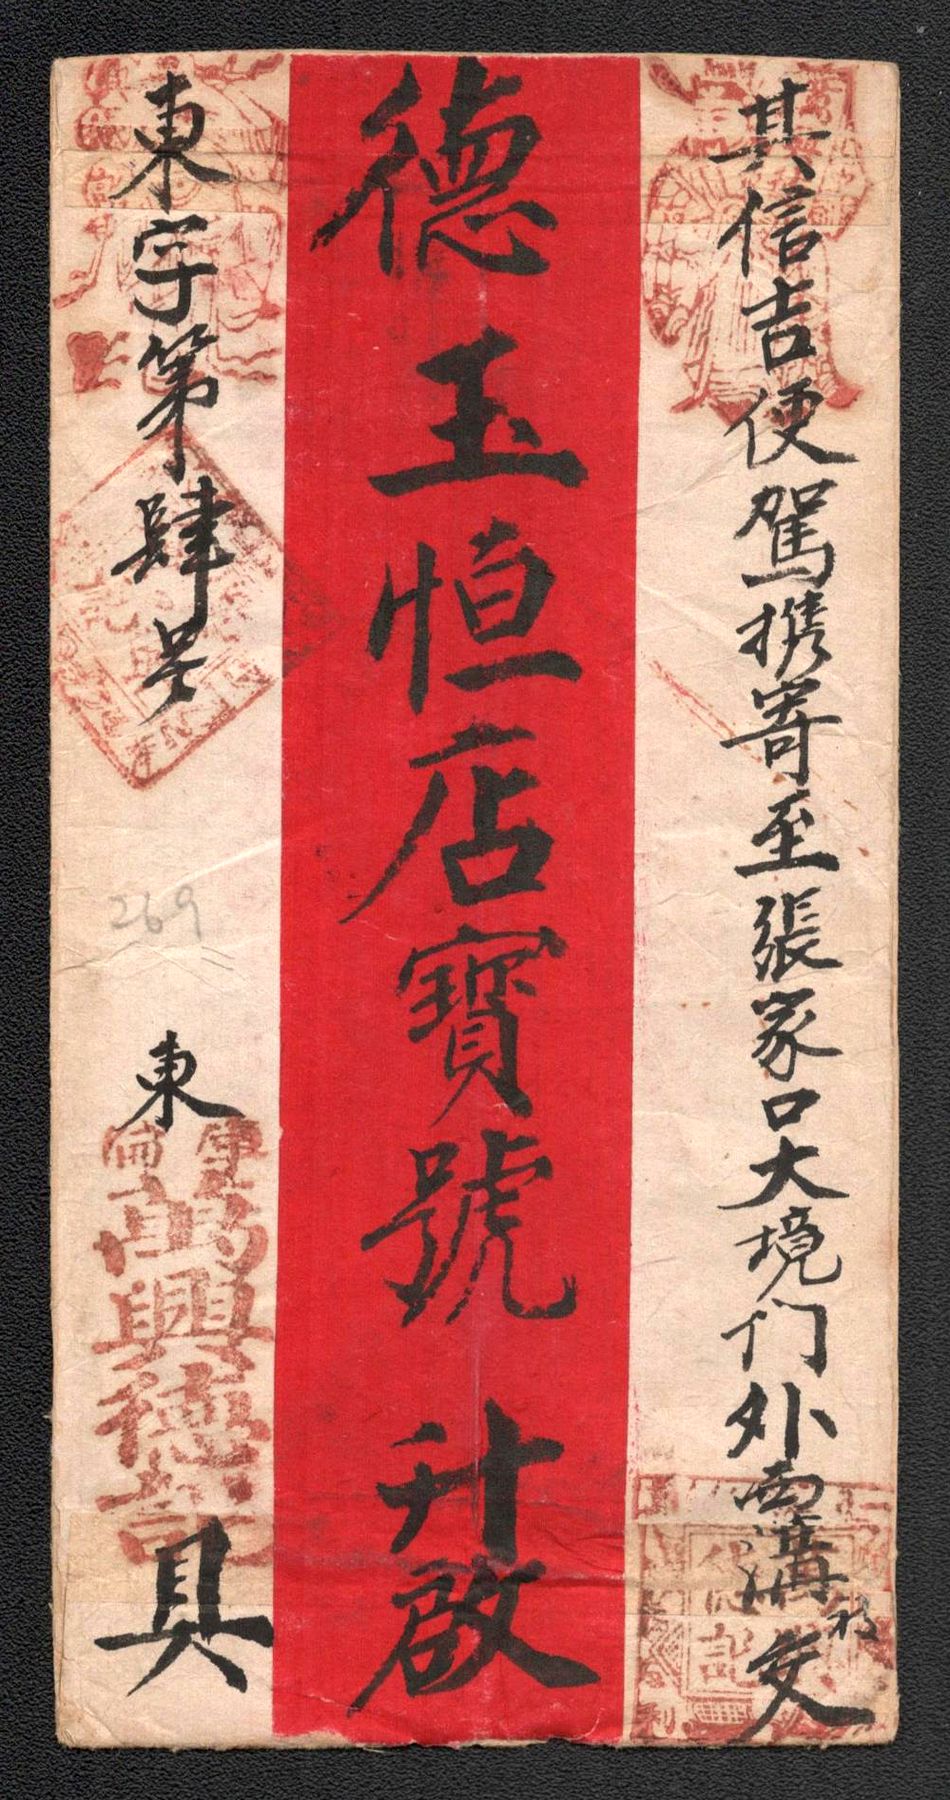 其信吉便駕携寄至張家口大境门外西溝祈交
德玉恒店寶號 升啟
東字第肆号
269
東
庫倫
萬興德記
具